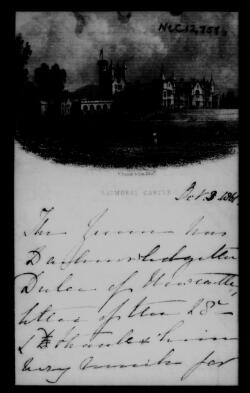 NeC 12,758
BALMORAL CASTLE
Oct. 3. 1861
The Queen has
to acknowledge the
Duke of Newcastle's
letter of the 28th
& to thank him
very much for